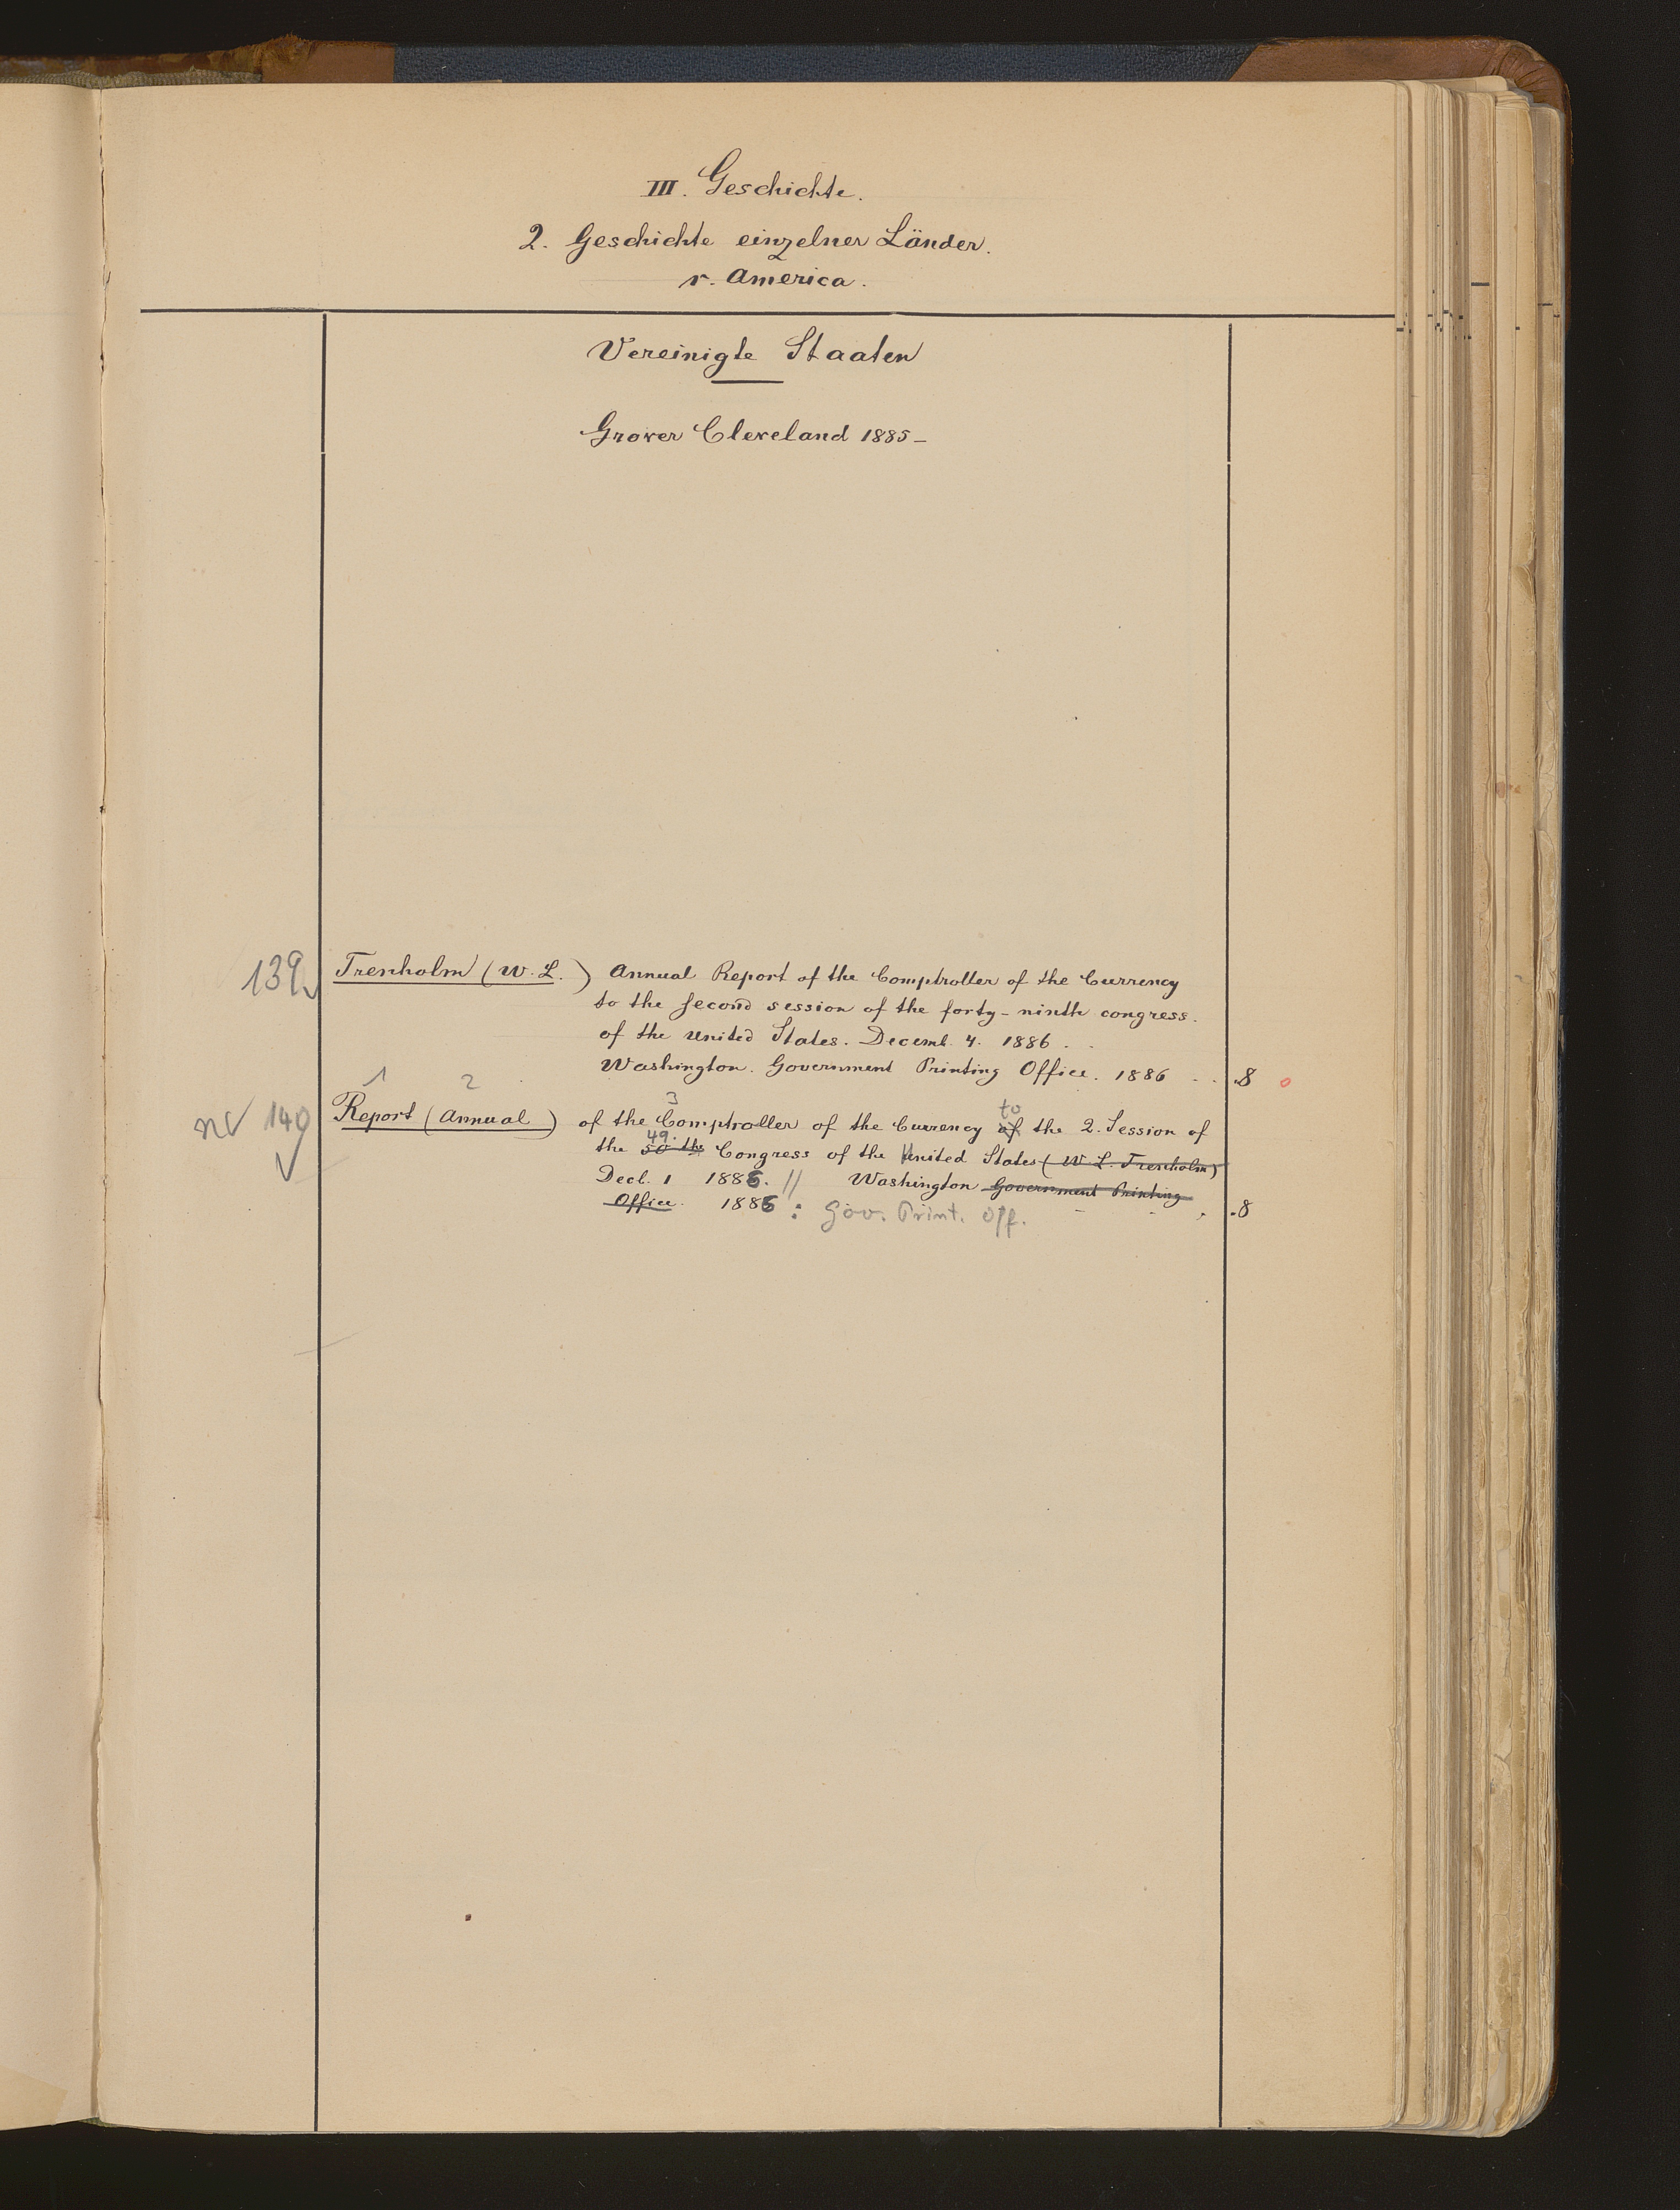 III. Geschichte.
2. Geschichte einzelner Länder.
r. America.
Vereinigte Staaten
Grover Cleveland 1885-
139 Trenholm (W. L.) Annual Report of the Comptroller of the Currency
to the second session of the forty-ninth congress.
of the United States. Decemb. 4. 1886.
Washington. Government Printing Office. 1886 .8 o
1 2 3 to
140 Report (Annual) of the Comptroller of the Currency of the 2. Session of
49.
the 50 the Congress of the United States (W. L. Trenholm)
Decb. 1 1886. // Washington Government Printing
Office. 1886 : Gov. Print. Off. .8